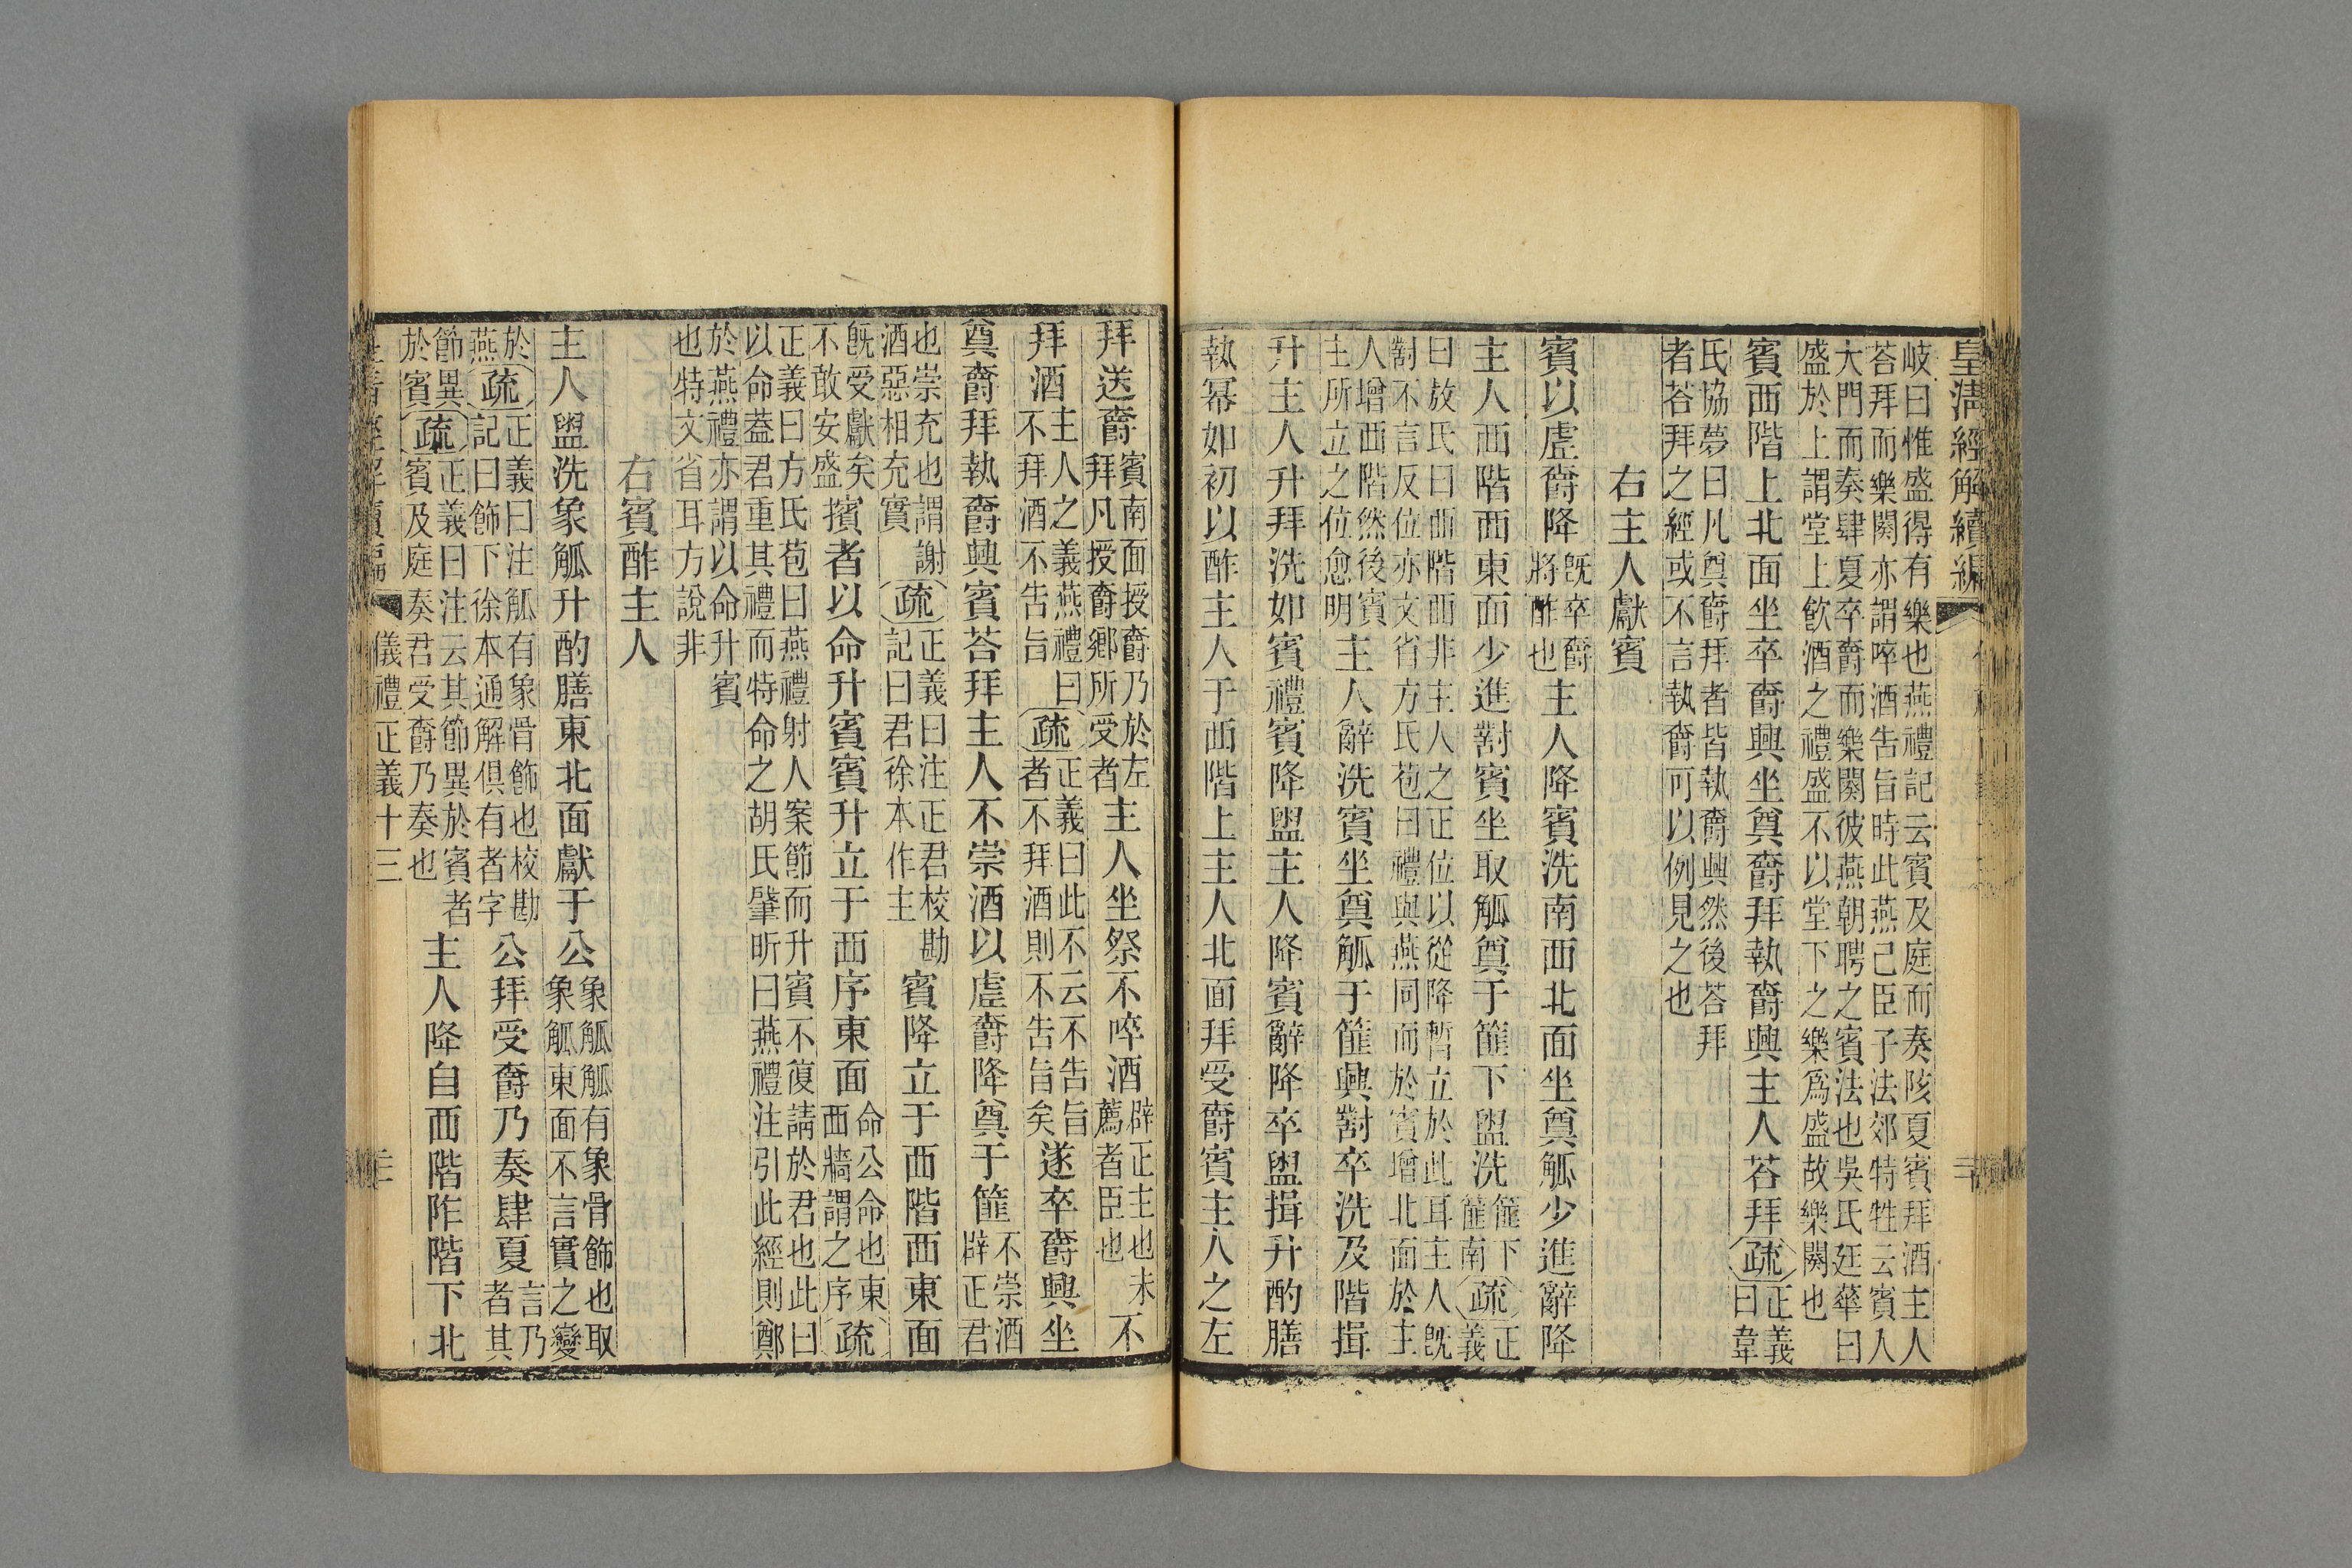 皇清經解續編
岐曰惟盛得有樂也燕禮記云賓及庭而奏陔夏賓拜酒主人
荅拜而樂闋亦謂啐酒告旨時此燕己臣子法郊特牲云賓人
大門而奏肆夏卒爵而樂闋彼燕朝聘之賓法也吳氏廷華曰
盛於上謂堂上飮酒之禮盛不以堂下之樂爲盛故樂闋也
賓西階上北面坐卒爵興坐奠爵拜執爵興主人荅拜疏正義
曰韋
氏協夢曰凡奠爵拜者皆執爵興然後荅拜
者荅拜之經或不言執爵可以例見之也
右主人獻賓
賓以虛爵降旣卒爵
將酢也主人降賓洗南西北面坐奠觚少進辭降
主人西階西東面少進對賓坐取觚奠于篚下盥洗篚下
篚南疏正
義
曰敖氏曰西階西非主人之正位以從降暫立於此耳主人旣
對不言反位亦文省方氏苞曰禮與燕同而於賓增北面於主
人增西階然後賓
主所立之位愈明主人辭洗賓坐奠觚于篚興對卒洗及階揖
升主人升拜洗如賓禮賓降盥主人降賓辭降卒盥揖升酌膳
執冪如初以酢主人于西階上主人北面拜受爵賓主人之左
拜送爵賓南面授爵乃於左
拜凡授爵鄉所受者主人坐祭不啐酒辟正主也未
薦者臣也不
拜酒主人之義燕禮曰
不拜酒不告旨疏正義曰此不云不告旨
者不拜酒則不告旨矣遂卒爵興坐
奠爵拜執爵興賓荅拜主人不崇酒以虛爵降奠于篚不崇酒
辟正君
也崇充也謂謝
酒惡相充實疏正義曰注正君校勘
記曰君徐本作主賓降立于西階西東面
旣受獻矣
不敢安盛擯者以命升賓賓升立于西序東面命公命也東
西牆謂之序疏
正義曰方氏苞曰燕禮射人案節而升賓不復請於君也此曰
以命蓋君重其禮而特命之胡氏肇昕曰燕禮注引此經則鄭
於燕禮亦謂以命升賓
也特文省耳方說非
右賓酢主人
主人盥洗象觚升酌膳東北面獻于公象觚觚有象骨飾也取
象觚東面不言實之變
於
燕疏正義曰注觚有象骨飾也校勘
記曰飾下徐本通解俱有者字公拜受爵乃奏肆夏言乃
者其
節異
於賓疏正義曰注云其節異於賓者
賓及庭奏君受爵乃奏也主人降自西階阼階下北
儀禮正義十三